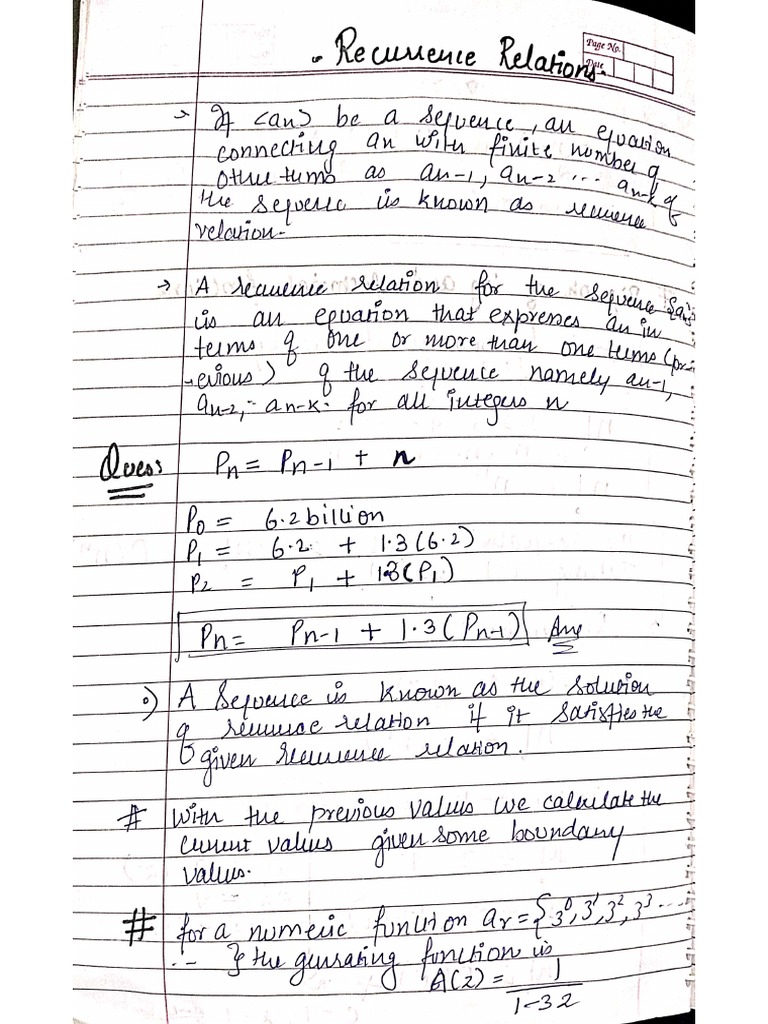 Recurrence Relations.
Page No.
Date
→ If <an> be a sequence, an equation
connecting an with finite number of
other terms as an-1, an-2 ... an-k of
the sequence is known as recurrence
relation.
→ A recurrence relation for the sequence {an}
is an equation that expresses an in
terms of one or more than one terms (pr
-evious) of the sequence namely an-1,
an-2, - an-k. for all integers n
Ques: Pn = Pn-1 + n
P0 = 6.2 billion
P1 = 6.2 + 1.3(6.2)
P2 = P1 + 1.3(P1)
Pn = Pn-1 + 1.3(Pn-1) Ans
A sequence is known as the solution
of recurrence relation if it satisfies the
given recurrence relation.
# With the previous values we calculate the
current values given some boundary
values.
# for a numeric function ar = {3⁰, 3¹, 3², 3³ ...
... } the generating function is
A(z) = 1
1-3z